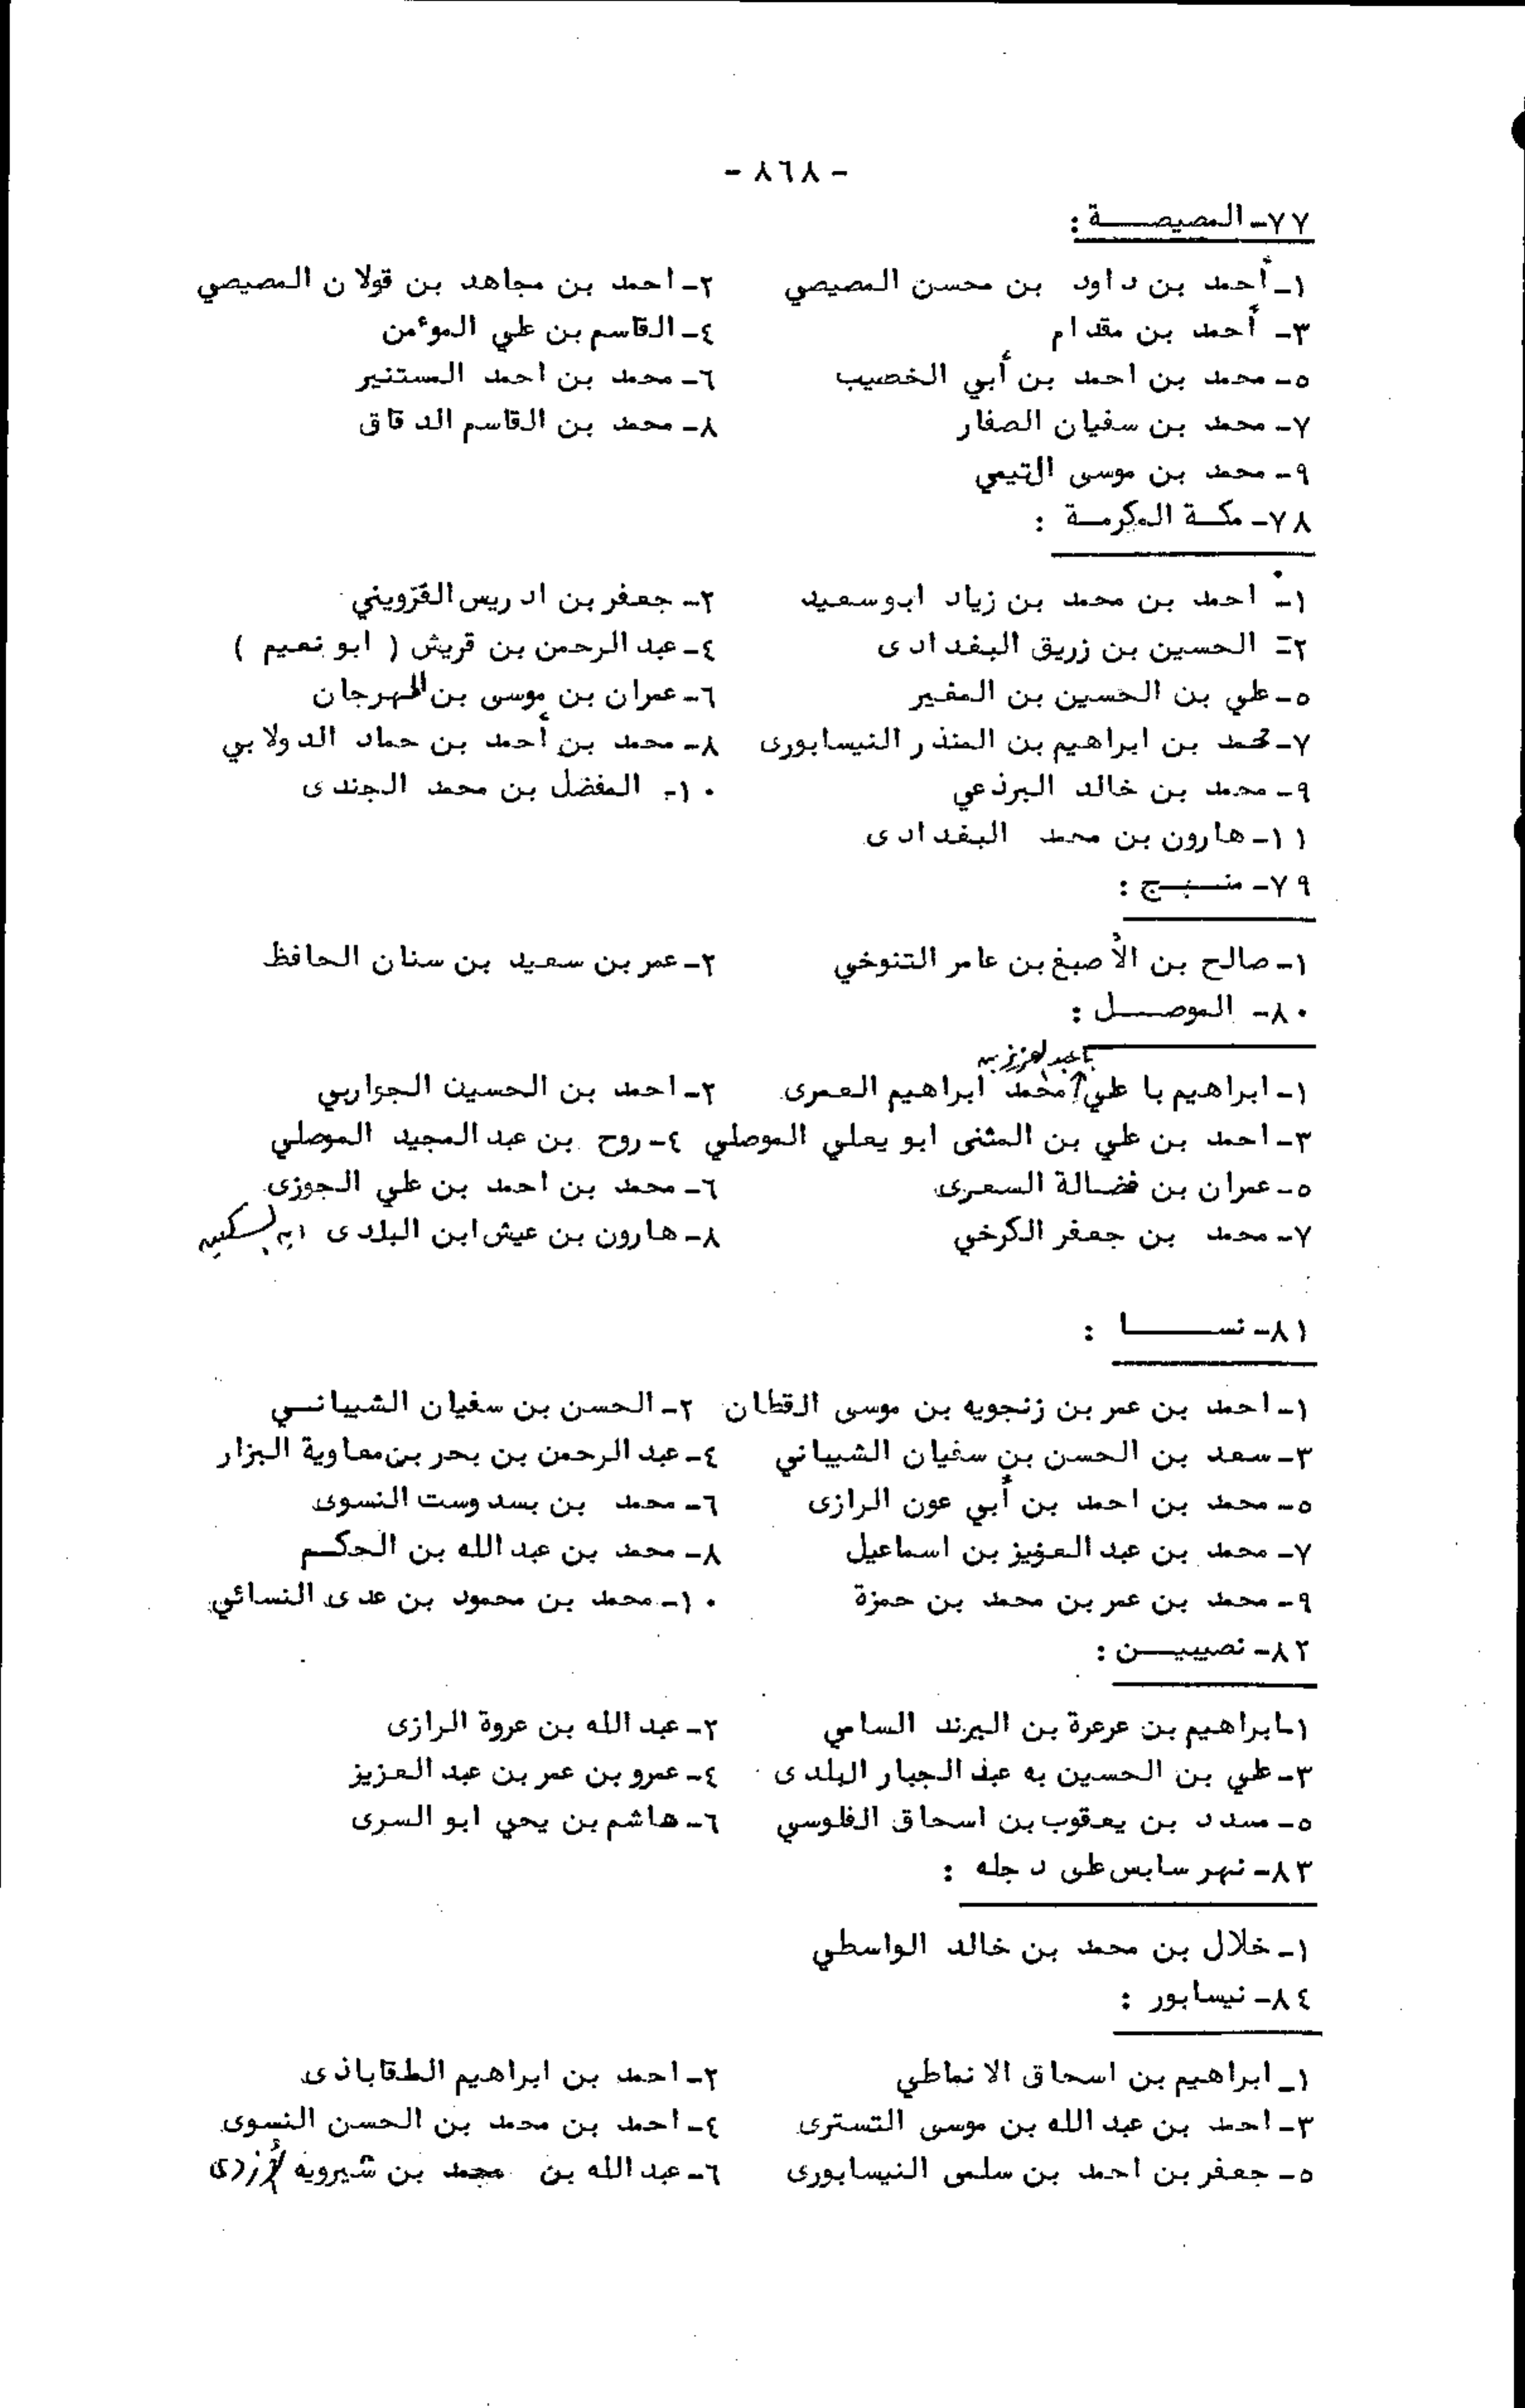 - ٨٦٨ -
٧٧- المصيصــة :
١- أحمد بن داود بن محسن المصيصي ٢- احمد بن مجاهد بن قولان المصيصي
٣- أحمد بن مقدام ٤- القاسم بن علي الموءمن
٥- محمد بن احمد بن أبي الخصيب ٦- محمد بن احمد المستنير
٧- محمد بن سفيان الصفار ٨- محمد بن القاسم الدقاق
٩- محمد بن موسى التيمي
٧٨- مكـة المكرمـة :
١- احمد بن محمد بن زياد ابوسعيد ٢- جعفر بن ادريس القزويني
٢- الحسين بن زريق البغدادى ٤- عبد الرحمن بن قريش ( ابو نعيم )
٥- علي بن الحسين بن المغير ٦- عمران بن موسى بن المهرجان
٧- محمد بن ابراهيم بن المنذر النيسابورى ٨- محمد بن أحمد بن حماد الدولابي
٩- محمد بن خالد البرذعي ١٠- المفضل بن محمد الجندى
١١- هارون بن محمد البغدادى
٧٩- منــبج :
١- صالح بن الأصبغ بن عامر التنوخي ٢- عمر بن سعيد بن سنان الحافظ
٨٠- الموصــل :
عبد العزيز بن
١- ابراهيم با علي محمد ابراهيم العمرى ٢- احمد بن الحسين الجواربي
٣- احمد بن علي بن المثنى ابو يعلي الموصلي ٤- روح بن عبد المجيد الموصلي
٥- عمران بن فضالة السعرى ٦- محمد بن احمد بن علي الجوزى
٧- محمد بن جعفر الكرخي ٨- هارون بن عيش ابن البلدى
٨١- نســـا :
١- احمد بن عمر بن زنجويه بن موسى القطان ٢- الحسن بن سفيان الشيبانـي
٣- سعد بن الحسن بن سفيان الشيباني ٤- عبد الرحمن بن بحر بن معاوية البزار
٥- محمد بن احمد بن أبي عون الرازى ٦- محمد بن بسدوست النسوى
٧- محمد بن عبد العزيز بن اسماعيل ٨- محمد بن عبد الله بن الحكـم
٩- محمد بن عمر بن محمد بن حمزة ١٠- محمد بن محمود بن عدى النسائي
٨٢- نصيبيــن :
١- ابراهيم بن عرعرة بن اليرند السامي ٢- عبد الله بن عروة الرازى
٣- علي بن الحسين به عبد الجبار البلدى ٤- عمرو بن عمر بن عبد العزيز
٥- مسدد بن يعقوب بن اسحاق الفلوسي ٦- هاشم بن يحي ابو السرى
٨٣- نهر سابس على دجله :
١- خلال بن محمد بن خالد الواسطي
٨٤- نيسابور :
١- ابراهيم بن اسحاق الانماطي ٢- احمد بن ابراهيم الطقاباذى
٣- احمد بن عبد الله بن موسى التسترى ٤- احمد بن محمد بن الحسن النسوى
٥- جعفر بن احمد بن سلمى النيسابورى ٦- عبد الله بن محمد بن شيرويه الأزدى